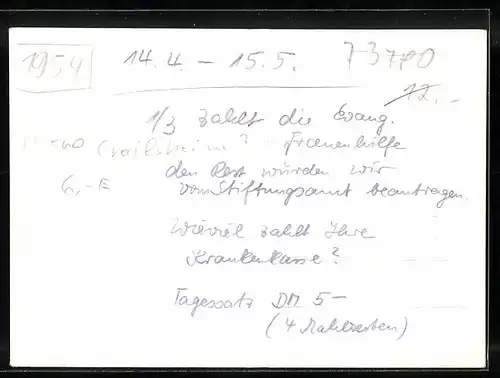 1954
14.4. – 15.5.
73780
12.–
1/3 zahlt die Evang.
Crailsheim? Frauenhilfe
den Rest würden wir
6,-E vom Stiftungsamt beantragen.
Wieviel zahlt Ihre
Krankenkasse?
Tagessatz DM 5–
(4 Mahlzeiten)